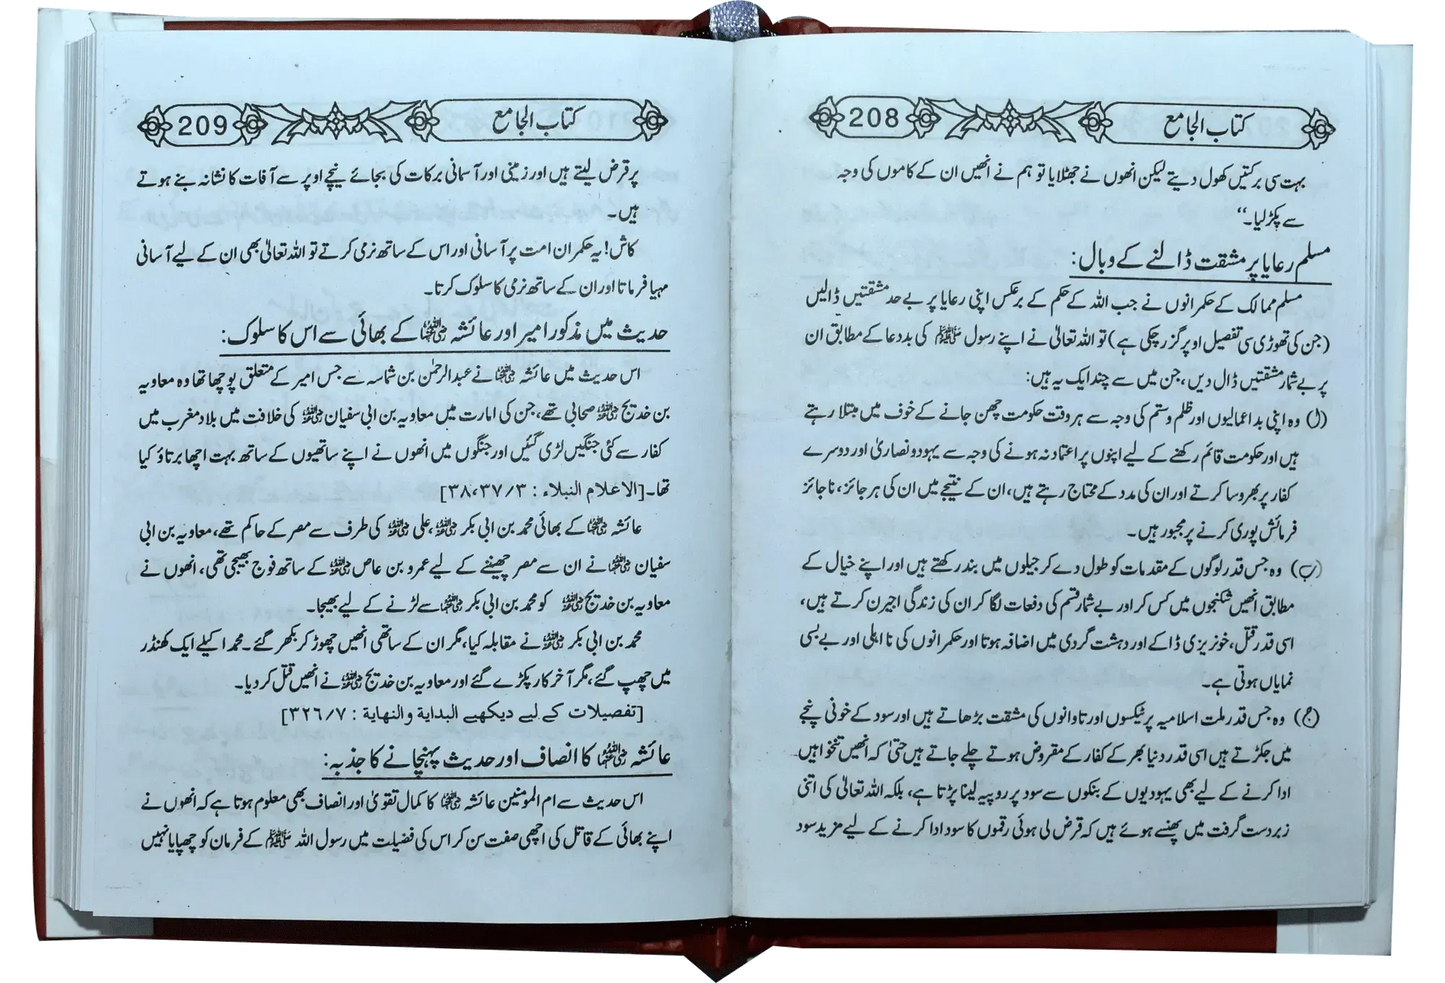 208
کتاب الجامع
بہت سی برکتیں کھول دیتے لیکن انھوں نے جھٹلایا تو ہم نے انھیں ان کے کاموں کی وجہ
سے پکڑ لیا۔‘‘
مسلم رعایا پر مشقت ڈالنے کے وبال:
مسلم ممالک کے حکمرانوں نے جب اللہ کے حکم کے برعکس اپنی رعایا پر بے حد مشقتیں ڈالیں
(جن کی تھوڑی سی تفصیل اوپر گزر چکی ہے) تو اللہ تعالیٰ نے اپنے رسول ﷺ کی بددعا کے مطابق ان
پر بے شمار مشقتیں ڈال دیں، جن میں سے چند ایک یہ ہیں:
(ا) وہ اپنی بداعمالیوں اور ظلم و ستم کی وجہ سے ہر وقت حکومت چھن جانے کے خوف میں مبتلا رہتے
ہیں اور حکومت قائم رکھنے کے لیے اپنوں پر اعتماد نہ ہونے کی وجہ سے یہود و نصاریٰ اور دوسرے
کفار پر بھروسا کرتے اور ان کی مدد کے محتاج رہتے ہیں، ان کے نتیجے میں ان کی ہر جائز، ناجائز
فرمائش پوری کرنے پر مجبور ہیں۔
(ب) وہ جس قدر لوگوں کے مقدمات کو طول دے کر جیلوں میں بند رکھتے ہیں اور اپنے خیال کے
مطابق انھیں شکنجوں میں کس کر اور بے شمار قسم کی دفعات لگا کر ان کی زندگی اجیرن کرتے ہیں،
اسی قدر قتل، خونریزی ڈاکے اور دہشت گردی میں اضافہ ہوتا اور حکمرانوں کی نااہلی اور بے بسی
نمایاں ہوتی ہے۔
(ج) وہ جس قدر ملت اسلامیہ پر ٹیکسوں اور تاوانوں کی مشقت بڑھاتے ہیں اور سود کے خونی پنجے
میں جکڑتے ہیں اسی قدر دنیا بھر کے کفار کے مقروض ہوتے چلے جاتے ہیں حتیٰ کہ انھیں تنخواہیں
ادا کرنے کے لیے بھی یہودیوں کے بنکوں سے سود پر روپیہ لینا پڑتا ہے، بلکہ اللہ تعالیٰ کی اتنی
زبردست گرفت میں پھنسے ہوئے ہیں کہ قرض لی ہوئی رقموں کا سود ادا کرنے کے لیے مزید سود
209
کتاب الجامع
پر قرض لیتے ہیں اور زمینی اور آسمانی برکات کی بجائے نیچے اوپر سے آفات کا نشانہ بنے ہوتے
ہیں۔
کاش! یہ حکمران امت پر آسانی اور اس کے ساتھ نرمی کرتے تو اللہ تعالیٰ بھی ان کے لیے آسانی
مہیا فرماتا اور ان کے ساتھ نرمی کا سلوک کرتا۔
حدیث میں مذکور امیر اور عائشہ رضی اللہ عنہا کے بھائی سے اس کا سلوک:
اس حدیث میں عائشہ رضی اللہ عنہا نے عبدالرحمٰن بن شماسہ سے جس امیر کے متعلق پوچھا تھا وہ معاویہ
بن خدیج رضی اللہ عنہ صحابی تھے، جن کی امارت میں معاویہ بن ابی سفیان رضی اللہ عنہما کی خلافت میں بلاد مغرب میں
کفار سے کئی جنگیں لڑی گئیں اور جنگوں میں انھوں نے اپنے ساتھیوں کے ساتھ بہت اچھا برتاؤ کیا
تھا۔ [الاعلام النبلاء : ۳/۳۷، ۳۸]
عائشہ رضی اللہ عنہا کے بھائی محمد بن ابی بکر رضی اللہ عنہما، علی رضی اللہ عنہ کی طرف سے مصر کے حاکم تھے، معاویہ بن ابی
سفیان رضی اللہ عنہما نے ان سے مصر چھیننے کے لیے عمرو بن عاص رضی اللہ عنہ کے ساتھ فوج بھیجی تھی، انھوں نے
معاویہ بن خدیج رضی اللہ عنہ کو محمد بن ابی بکر رضی اللہ عنہما سے لڑنے کے لیے بھیجا۔
محمد بن ابی بکر رضی اللہ عنہما نے مقابلہ کیا، مگر ان کے ساتھی انھیں چھوڑ کر بکھر گئے۔ محمد اکیلے ایک کھنڈر
میں چھپ گئے، مگر آخر کار پکڑے گئے اور معاویہ بن خدیج رضی اللہ عنہ نے انھیں قتل کر دیا۔
[تفصیلات کے لیے دیکھیے البدایة والنهایة : ۷/۳۲٦]
عائشہ رضی اللہ عنہا کا انصاف اور حدیث پہنچانے کا جذبہ:
اس حدیث سے ام المومنین عائشہ رضی اللہ عنہا کا کمال تقویٰ اور انصاف بھی معلوم ہوتا ہے کہ انھوں نے
اپنے بھائی کے قاتل کی اچھی صفت سن کر اس کی فضیلت میں رسول اللہ ﷺ کے فرمان کو چھپایا نہیں